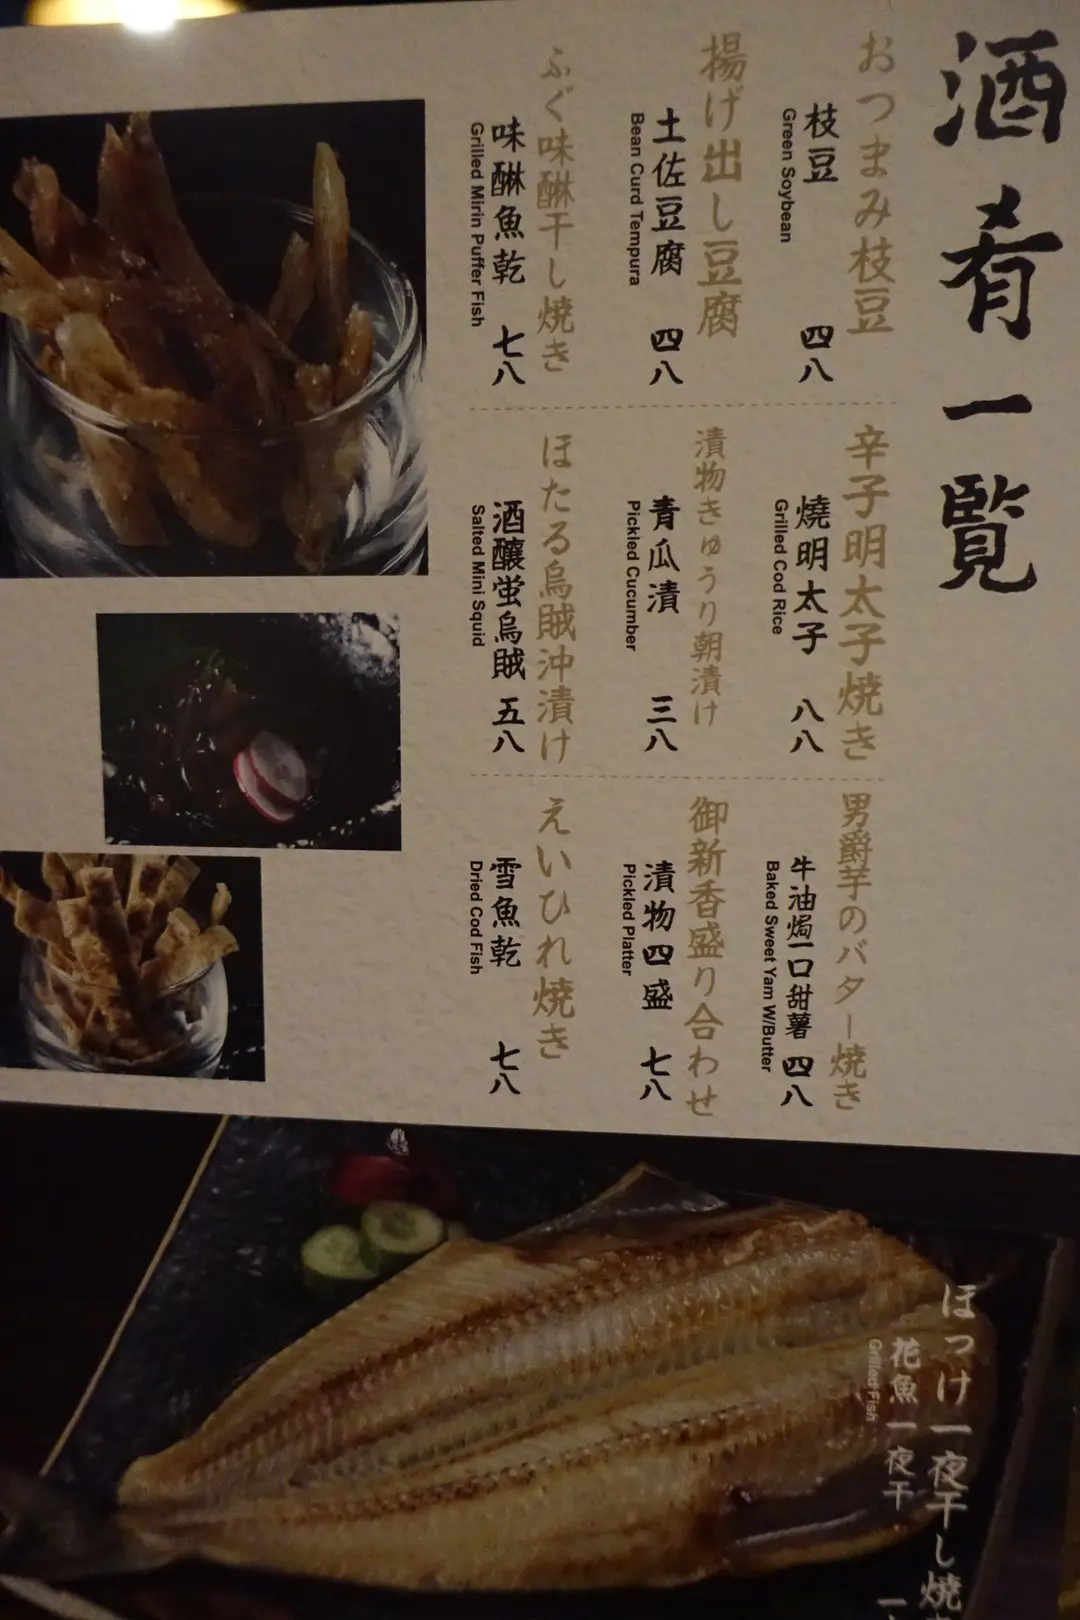 酒肴一覧
おつまみ枝豆
枝豆 四八
Green Soybean
揚げ出し豆腐
土佐豆腐 四八
Bean Curd Tempura
ふぐ味醂干し焼き
味醂魚乾 七八
Grilled Mirin Puffer Fish
辛子明太子焼き
燒明太子 八八
Grilled Cod Rice
漬物きゅうり朝漬け
青瓜漬 三八
Pickled Cucumber
ほたる烏賊沖漬け
酒釀蛍烏賊 五八
Salted Mini Squid
男爵芋のバター焼き
牛油焗一口甜薯 四八
Baked Sweet Yam W/Butter
御新香盛り合わせ
漬物四盛 七八
Pickled Platter
えいひれ焼き
雪魚乾 七八
Dried Cod Fish
ほっけ一夜干し焼
花魚一夜干
Grilled Fish